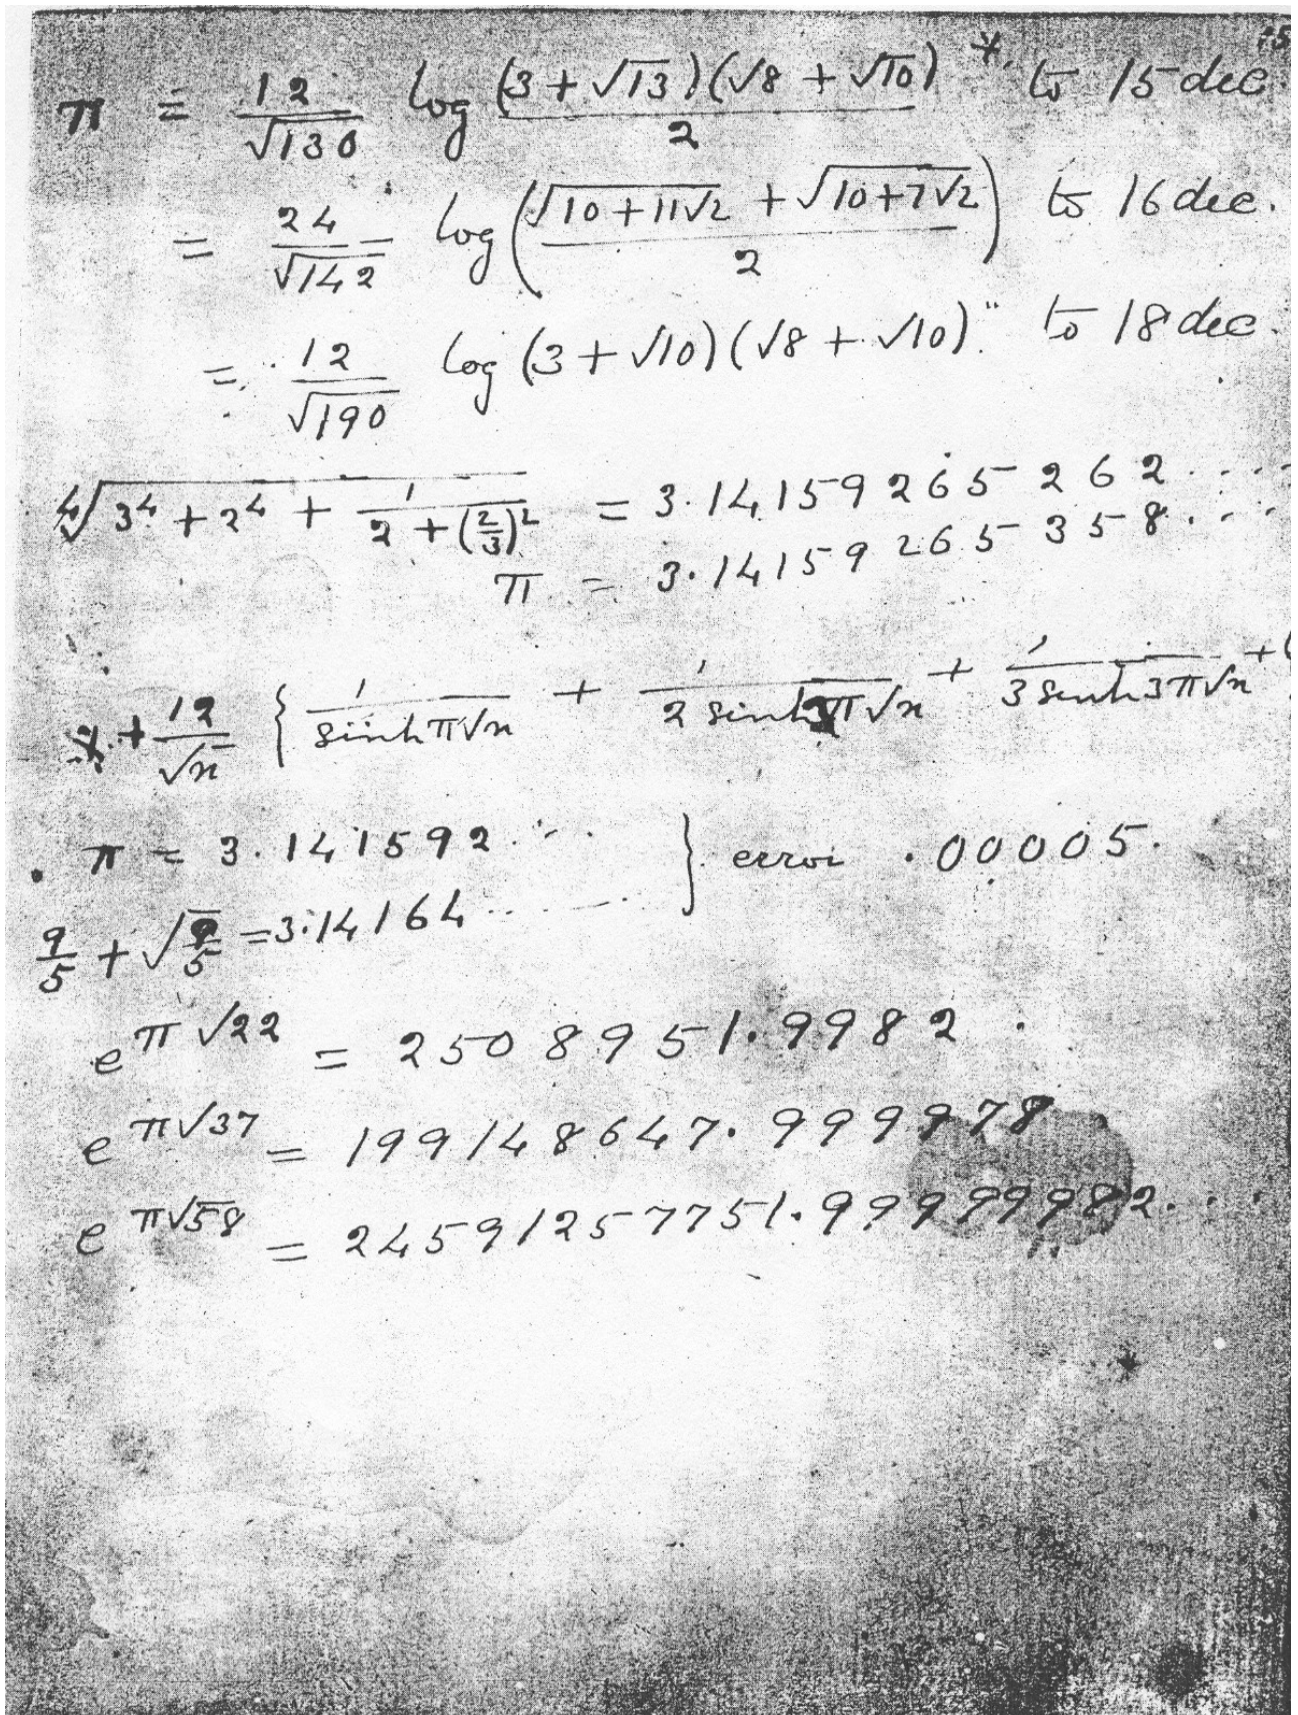 15
π = 12/√130 log (3 + √13)(√8 + √10)/2 *. to 15 dec.
= 24/√142 log (√(10+11√2) + √(10+7√2))/2 to 16 dec.
= 12/√190 log (3 + √10)(√8 + √10)" to 18 dec.
∜(3⁴ + 2⁴ + 1/(2 + (2/3)²)) = 3.14159265262 . . . .
π = 3.14159265358 . . . .
+ 12/√n { 1/(sinh π√n) + 1/(2 sinh 2π√n) + 1/(3 sinh 3π√n) +
π = 3.141592 . . . } error .00005.
9/5 + √(9/5) = 3.14164 . . . . .
e^(π√22) = 2508951.9982 .
e^(π√37) = 199148647.999978
e^(π√58) = 24591257751.99999982. . .